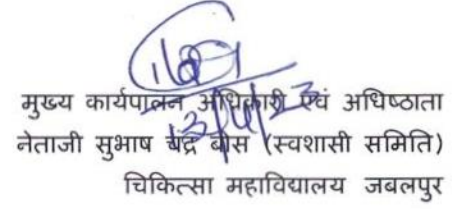 13/4/23
मुख्य कार्यपालन अधिकारी एवं अधिष्ठाता
नेताजी सुभाष चंद्र बोस (स्वशासी समिति)
चिकित्सा महाविद्यालय जबलपुर